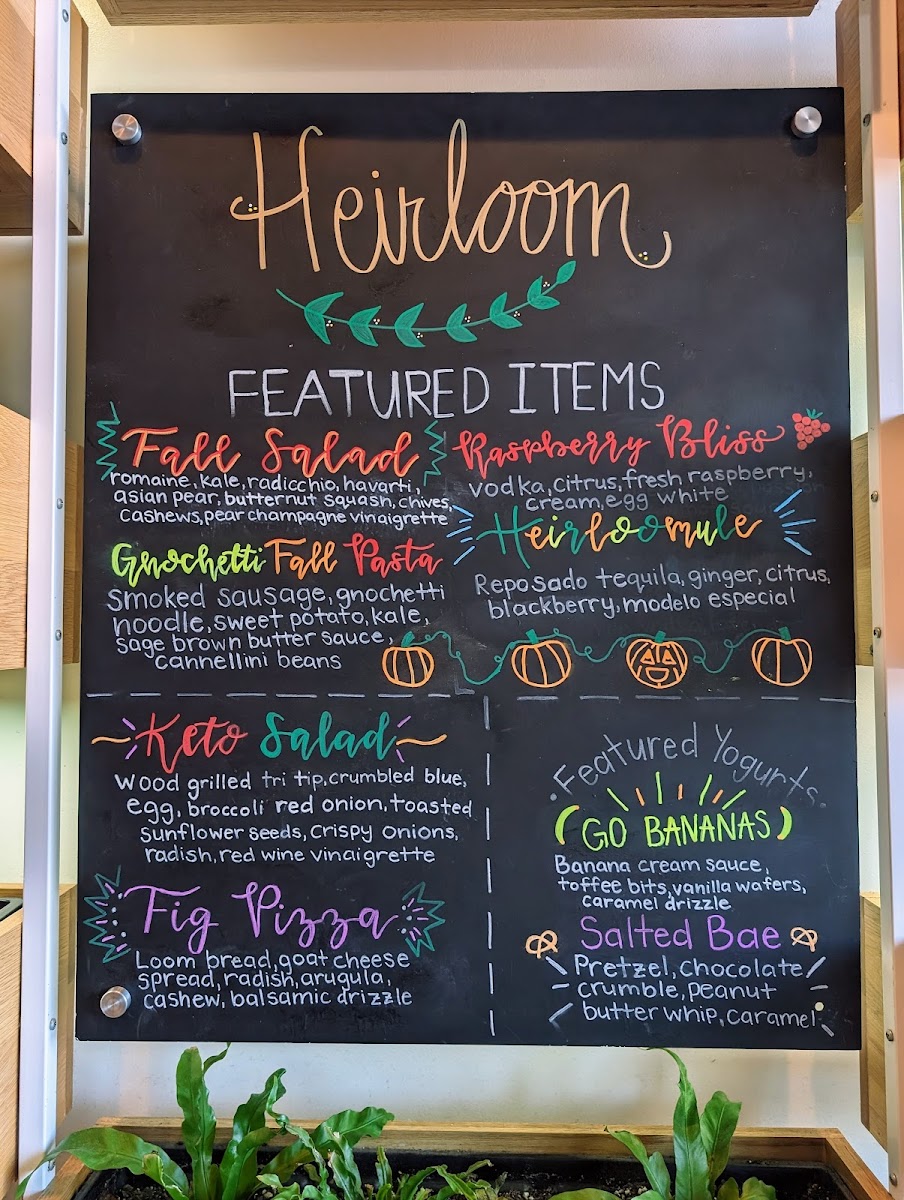 Heirloom
FEATURED ITEMS
Fall Salad
romaine, kale, radicchio, havarti,
asian pear, butternut squash, chives,
cashews, pear champagne vinaigrette
Gnochetti Fall Pasta
Smoked sausage, gnochetti
noodle, sweet potato, kale,
sage brown butter sauce,
cannellini beans
Raspberry Bliss
vodka, citrus, fresh raspberry,
cream, egg white
Heirloomule
Reposado tequila, ginger, citrus,
blackberry, modelo especial
Keto Salad
Wood grilled tri tip, crumbled blue,
egg, broccoli red onion, toasted
sunflower seeds, crispy onions,
radish, red wine vinaigrette
Fig Pizza
Loom bread, goat cheese
spread, radish, arugula,
cashew, balsamic drizzle
Featured Yogurts
GO BANANAS
Banana cream sauce,
toffee bits, vanilla wafers,
caramel drizzle
Salted Bae
Pretzel, chocolate
crumble, peanut
butter whip, caramel